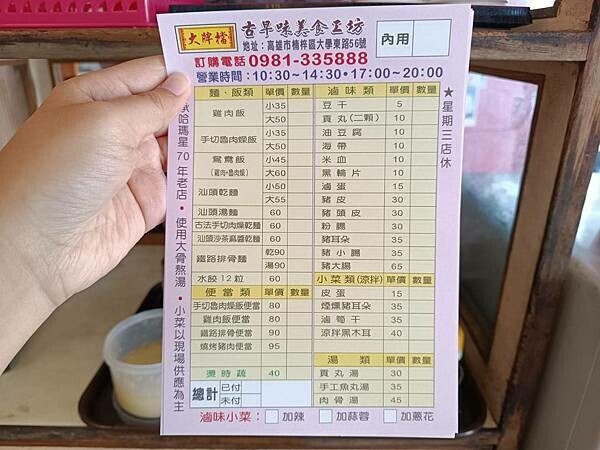 大牌檔
古早味美食工坊
地址：高雄市楠梓區大學東路56號
訂購電話 0981-335888
營業時間：10:30~14:30•17:00~20:00
內用
承哈瑪星70年老店•使用大骨熬湯•小菜以現場供應為主
★星期三店休
麵、飯類 單價 數量
雞肉飯 小35
大50
手切魯肉燥飯 小35
大50
鴛鴦飯 小45
(雞肉+魯肉燥) 大60
汕頭乾麵 小50
大55
汕頭湯麵 60
古法手切肉燥乾麵 60
汕頭沙茶麻醬乾麵 60
鐵路排骨麵 乾90
湯90
水餃12粒 60
便當類 單價 數量
手切魯肉燥飯便當 80
雞肉飯便當 80
鐵路排骨便當 90
燒烤豬肉便當 95
燙時蔬 40
總計 已付
未付
滷味類 單價 數量
豆干 5
貢丸(二顆) 10
油豆腐 10
海帶 10
米血 10
黑輪片 10
滷蛋 15
豬皮 30
豬頭皮 35
粉腸 30
豬耳朵 35
豬小腸 35
豬大腸 65
小菜類(涼拌) 單價 數量
皮蛋 15
煙燻豬耳朵 35
滷筍干 35
涼拌黑木耳 40
湯類 單價 數量
貢丸湯 30
手工魚丸湯 35
肉骨湯 45
滷味小菜： 加辣 加蒜蓉 加蔥花